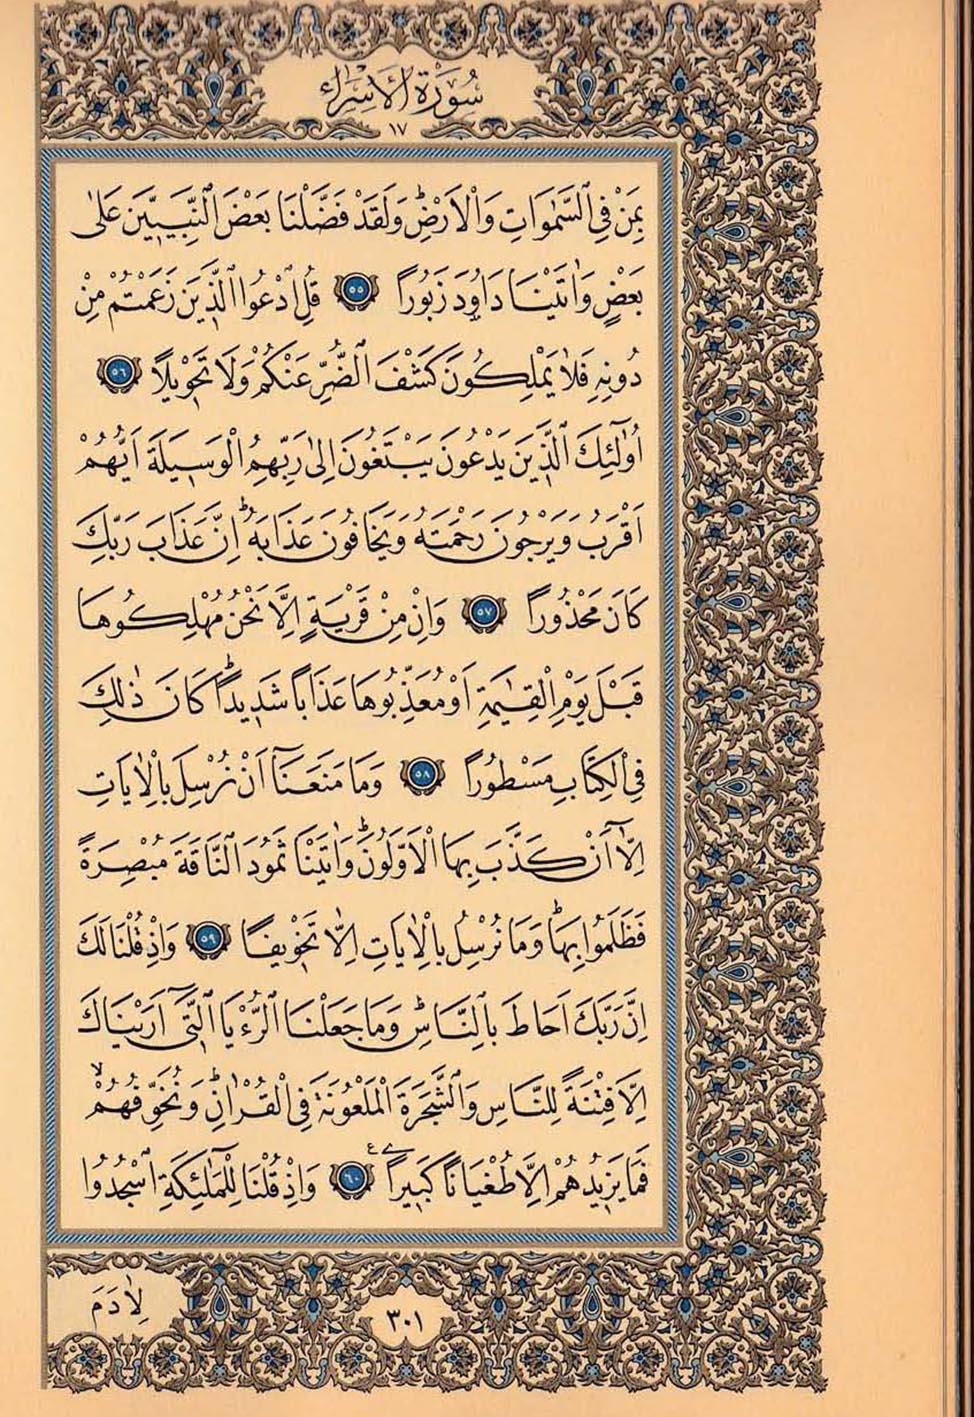 سُورَةُ الْاِسْرَاءِ
١٧
بِمَنْ فِي السَّمٰوَاتِ وَالْاَرْضِۜ وَلَقَدْ فَضَّلْنَا بَعْضَ النَّبِيّ۪نَ عَلٰى
بَعْضٍ وَاٰتَيْنَا دَاوُ۫دَ زَبُوراً ﴿٥٥﴾ قُلِ ادْعُوا الَّذ۪ينَ زَعَمْتُمْ مِنْ
دُونِه۪ فَلَا يَمْلِكُونَ كَشْفَ الضُّرِّ عَنْكُمْ وَلَا تَحْو۪يلاً ﴿٥٦﴾
اُو۬لٰٓئِكَ الَّذ۪ينَ يَدْعُونَ يَبْتَغُونَ اِلٰى رَبِّهِمُ الْوَس۪يلَةَ اَيُّهُمْ
اَقْرَبُ وَيَرْجُونَ رَحْمَتَهُ وَيَخَافُونَ عَذَابَهُۜ اِنَّ عَذَابَ رَبِّكَ
كَانَ مَحْذُوراً ﴿٥٧﴾ وَاِنْ مِنْ قَرْيَةٍ اِلَّا نَحْنُ مُهْلِكُوهَا
قَبْلَ يَوْمِ الْقِيٰمَةِ اَوْ مُعَذِّبُوهَا عَذَاباً شَد۪يداًۜ كَانَ ذٰلِكَ
فِي الْكِتَابِ مَسْطُوراً ﴿٥٨﴾ وَمَا مَنَعَنَٓا اَنْ نُرْسِلَ بِالْاٰيَاتِ
اِلَّٓا اَنْ كَذَّبَ بِهَا الْاَوَّلُونَۜ وَاٰتَيْنَا ثَمُودَ النَّاقَةَ مُبْصِرَةً
فَظَلَمُوا بِهَاۜ وَمَا نُرْسِلُ بِالْاٰيَاتِ اِلَّا تَخْو۪يفاً ﴿٥٩﴾ وَاِذْ قُلْنَا لَكَ
اِنَّ رَبَّكَ اَحَاطَ بِالنَّاسِۜ وَمَا جَعَلْنَا الرُّءْيَا الَّت۪ٓي اَرَيْنَاكَ
اِلَّا فِتْنَةً لِلنَّاسِ وَالشَّجَرَةَ الْمَلْعُونَةَ فِي الْقُرْاٰنِۜ وَنُخَوِّفُهُمْۙ
فَمَا يَز۪يدُهُمْ اِلَّا طُغْيَاناً كَب۪يراً۟ ﴿٦٠﴾ وَاِذْ قُلْنَا لِلْمَلٰٓئِكَةِ اسْجُدُوا
لِاٰدَمَ
٣٠١